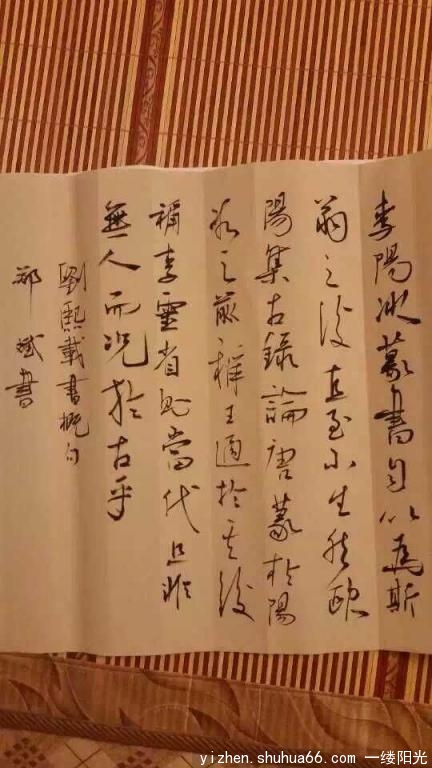 李陽冰篆書自以為斯
翁之後直至小生然歐
陽集古錄論唐篆於陽
冰之前稱王遹於其後
稱李靈省則當代且非
無人而況於古乎
劉熙載書概句
郑斌書
yizhen.shuhua66.com 一缕阳光